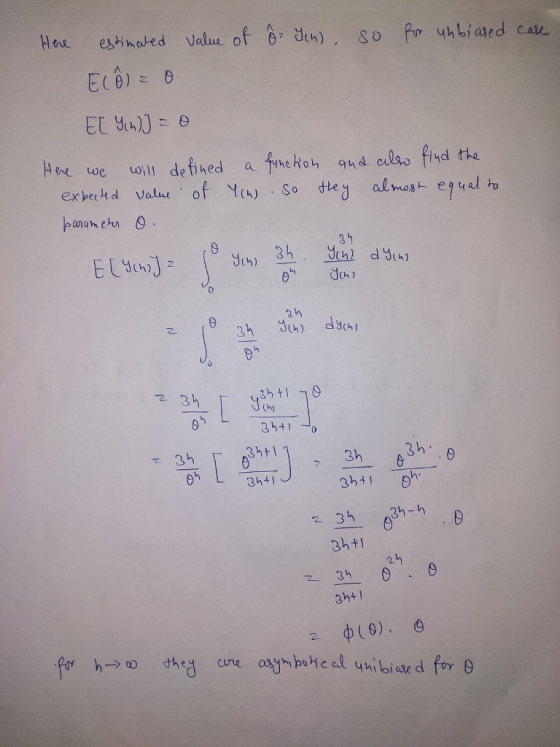 Here estimated value of θ̂ = Y(n). so for unbiased case
E(θ̂) = θ
E[Y(n)] = θ
Here we will defined a function and also find the
expected value of Y(n). so they almost equal to
parameter θ.
E[Y(n)] = ∫₀^θ y(n) 3n/θ^n · y(n)^3n / y(n) dy(n)
= ∫₀^θ 3n/θ^n y(n)^3n dy(n)
= 3n/θ^n [ y(n)^(3n+1) / 3n+1 ]₀^θ
= 3n/θ^n [ θ^(3n+1) / 3n+1 ] = 3n/3n+1 θ^3n·/θ^n· . θ
= 3n/3n+1 θ^(3n-n) . θ
= 3n/3n+1 θ^2n . θ
= φ(θ). θ
for n→∞ they are asymbotical unibiased for θ